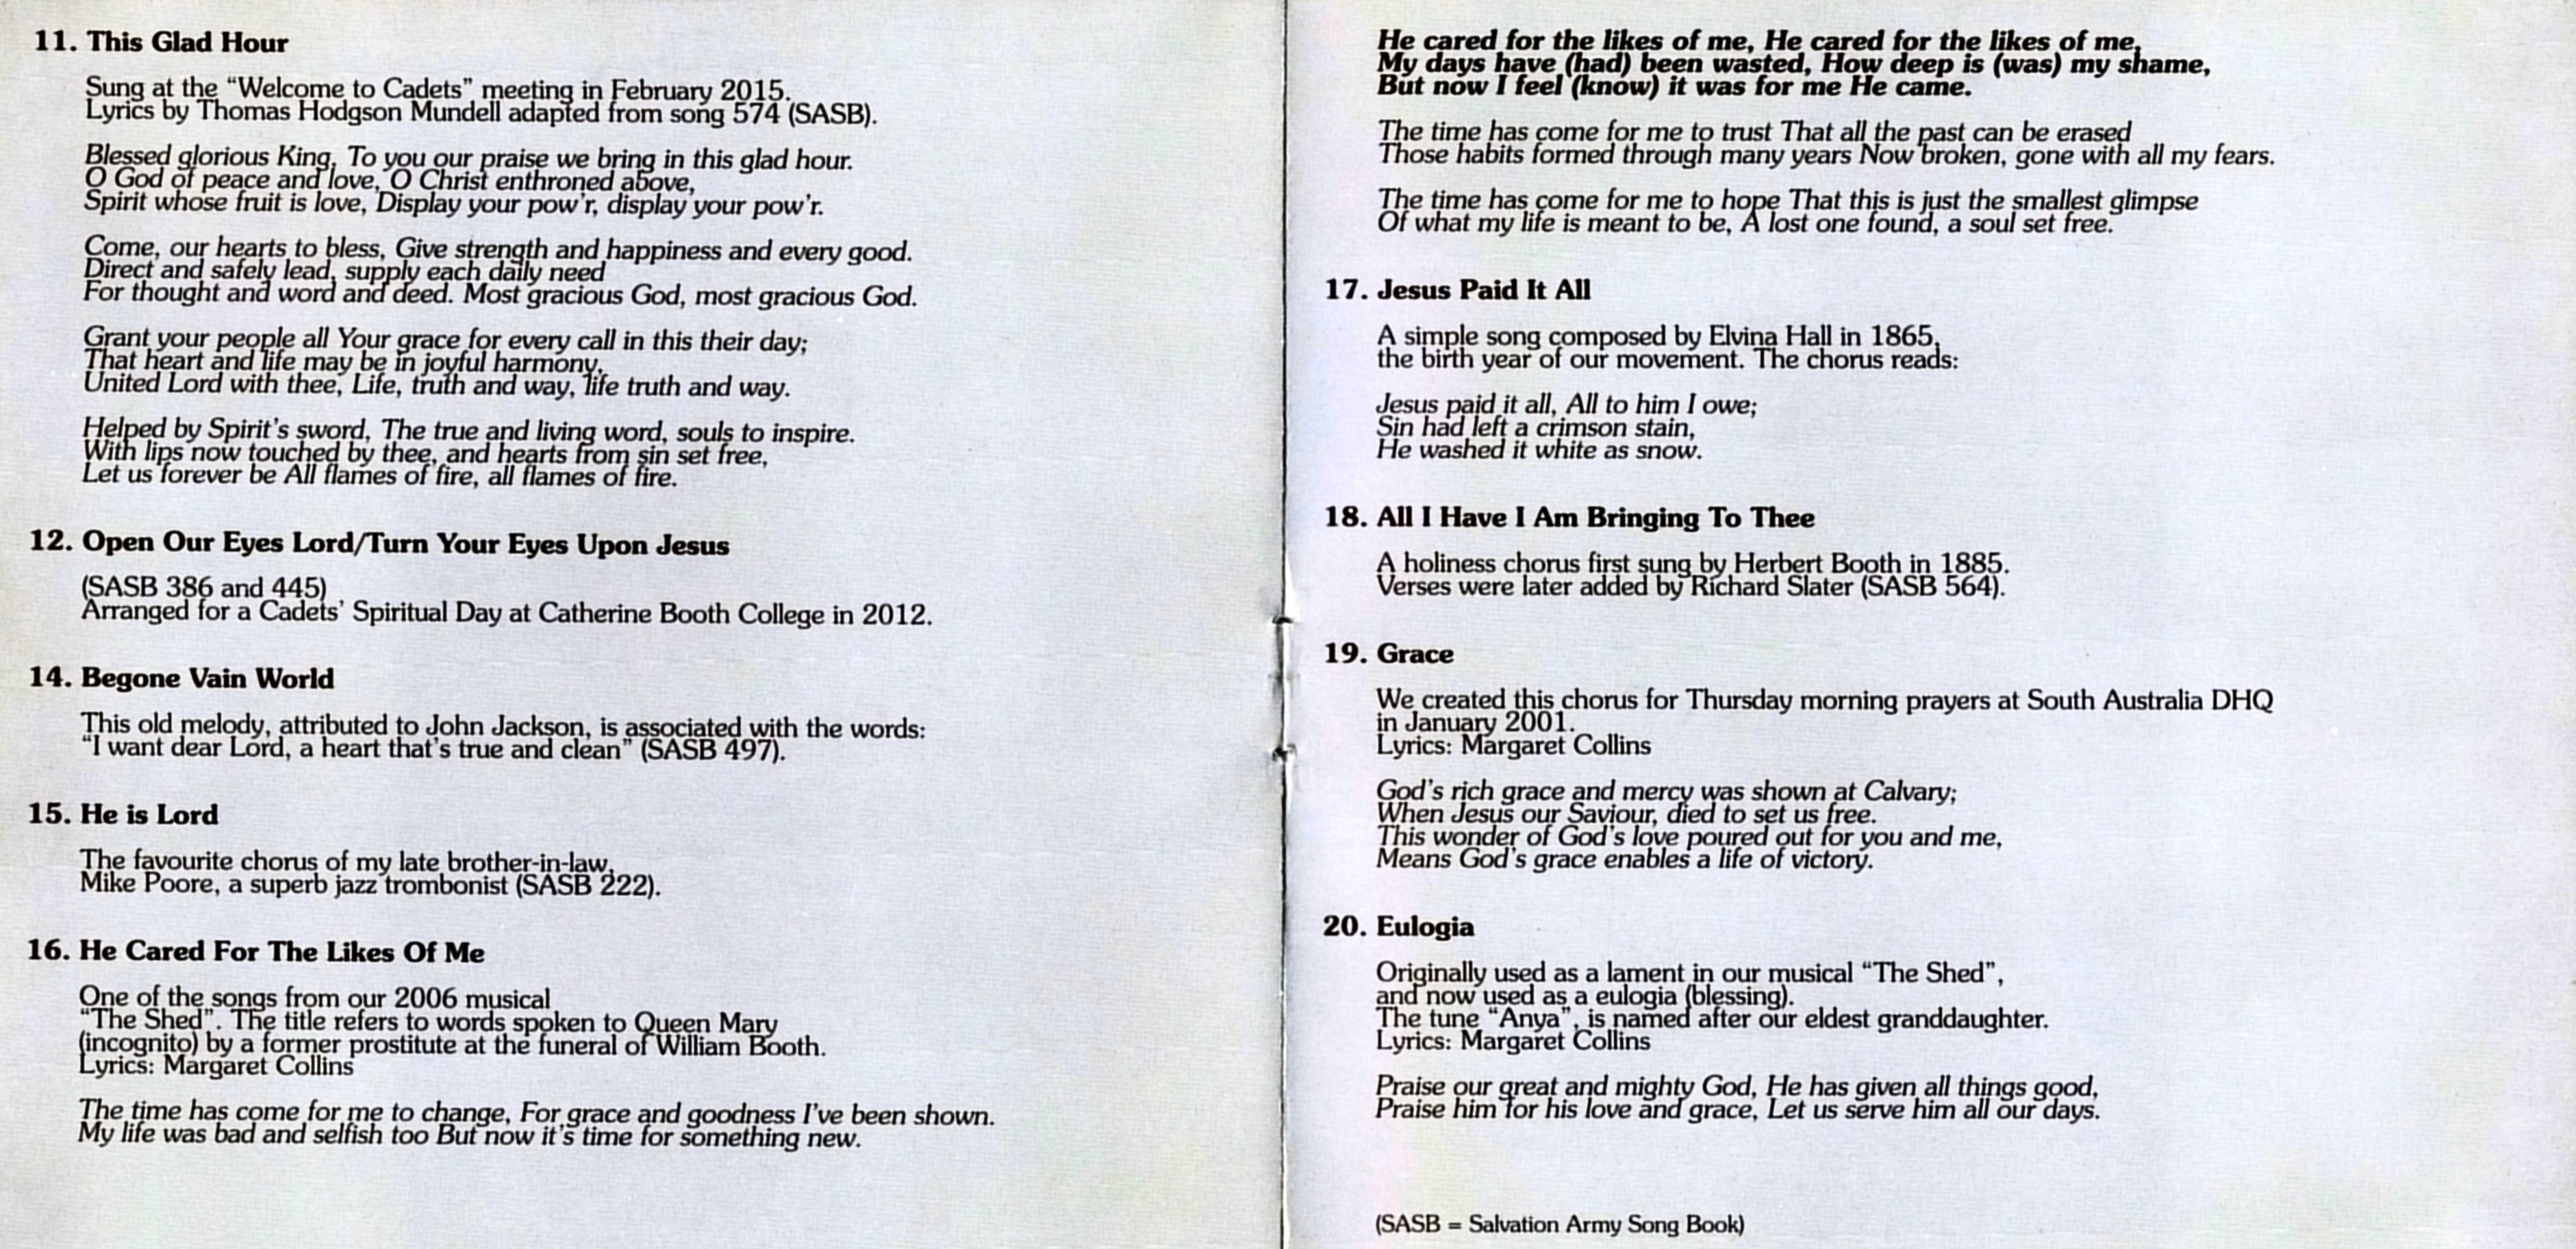 11. This Glad Hour
Sung at the “Welcome to Cadets” meeting in February 2015.
Lyrics by Thomas Hodgson Mundell adapted from song 574 (SASB).
Blessed glorious King, To you our praise we bring in this glad hour.
O God of peace and love, O Christ enthroned above,
Spirit whose fruit is love, Display your pow’r, display your pow’r.
Come, our hearts to bless, Give strength and happiness and every good.
Direct and safely lead, supply each daily need
For thought and word and deed. Most gracious God, most gracious God.
Grant your people all Your grace for every call in this their day;
That heart and life may be in joyful harmony,
United Lord with thee, Life, truth and way, life truth and way.
Helped by Spirit’s sword, The true and living word, souls to inspire.
With lips now touched by thee, and hearts from sin set free,
Let us forever be All flames of fire, all flames of fire.
12. Open Our Eyes Lord/Turn Your Eyes Upon Jesus
(SASB 386 and 445)
Arranged for a Cadets’ Spiritual Day at Catherine Booth College in 2012.
14. Begone Vain World
This old melody, attributed to John Jackson, is associated with the words:
“I want dear Lord, a heart that’s true and clean” (SASB 497).
15. He is Lord
The favourite chorus of my late brother-in-law,
Mike Poore, a superb jazz trombonist (SASB 222).
16. He Cared For The Likes Of Me
One of the songs from our 2006 musical
“The Shed”. The title refers to words spoken to Queen Mary
(incognito) by a former prostitute at the funeral of William Booth.
Lyrics: Margaret Collins
The time has come for me to change, For grace and goodness I’ve been shown.
My life was bad and selfish too But now it’s time for something new.
He cared for the likes of me, He cared for the likes of me,
My days have (had) been wasted, How deep is (was) my shame,
But now I feel (know) it was for me He came.
The time has come for me to trust That all the past can be erased
Those habits formed through many years Now broken, gone with all my fears.
The time has come for me to hope That this is just the smallest glimpse
Of what my life is meant to be, A lost one found, a soul set free.
17. Jesus Paid It All
A simple song composed by Elvina Hall in 1865,
the birth year of our movement. The chorus reads:
Jesus paid it all, All to him I owe;
Sin had left a crimson stain,
He washed it white as snow.
18. All I Have I Am Bringing To Thee
A holiness chorus first sung by Herbert Booth in 1885.
Verses were later added by Richard Slater (SASB 564).
19. Grace
We created this chorus for Thursday morning prayers at South Australia DHQ
in January 2001.
Lyrics: Margaret Collins
God’s rich grace and mercy was shown at Calvary;
When Jesus our Saviour, died to set us free.
This wonder of God’s love poured out for you and me,
Means God’s grace enables a life of victory.
20. Eulogia
Originally used as a lament in our musical “The Shed”,
and now used as a eulogia (blessing).
The tune “Anya”, is named after our eldest granddaughter.
Lyrics: Margaret Collins
Praise our great and mighty God, He has given all things good,
Praise him for his love and grace, Let us serve him all our days.
(SASB = Salvation Army Song Book)